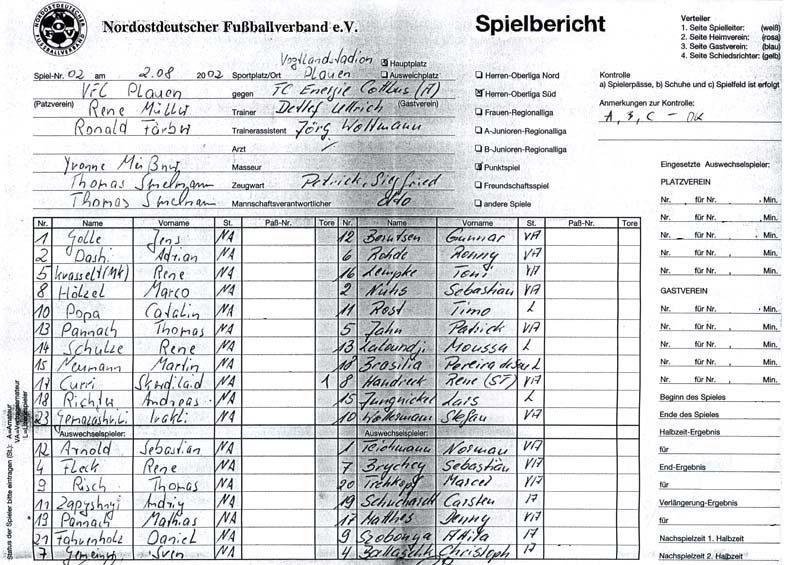 NORDOSTDEUTSCHER FUSSBALLVERBAND
NOFV
Nordostdeutscher Fußballverband e.V.
Spielbericht
Verteiler
1. Seite Spielleiter: (weiß)
2. Seite Heimverein: (rosa)
3. Seite Gastverein: (blau)
4. Seite Schiedsrichter: (gelb)
Spiel-Nr. 02 am 2.08 2002 Sportplatz/Ort Vogtlandstadion Plauen
Hauptplatz
Ausweichplatz
VFC Plauen gegen FC Energie Cottbus (A)
(Patzverein) Rene Müller Trainer Detlef Ullrich (Gastverein)
Ronald Färber Trainerassistent Jörg Woltmann
Arzt
Yvonne Meißner Masseur
Thomas Zeugwart Petrick, Siegfried
Thomas Mannschaftsverantwortlicher
Herren-Oberliga Nord
Herren-Oberliga Süd
Frauen-Regionalliga
A-Junioren-Regionalliga
B-Junioren-Regionalliga
Punktspiel
Freundschaftsspiel
andere Spiele
Kontrolle
a) Spielerpässe, b) Schuhe und c) Spielfeld ist erfolgt
Anmerkungen zur Kontrolle:
A, B, C - OK
Nr. Name Vorname St. Paß-Nr. Tore Nr. Name Vorname St. Paß-Nr. Tore
1 Golle Jens NA 12 Berntsen Gunnar VA
2 Dashi Adrian NA 6 Rohde Ronny VA
5 Krasselt (MK) Rene NA 16 Lempke Toni VA
8 Hölzel Marco NA 2 Sebastian VA
10 Popa Catalin NA 11 Rost Timo L
13 Pannach Thomas NA 5 Jahn Patrick VA
14 Schulze Rene NA 13 Latoundji Moussa L
15 Neumann Martin NA 18 Brasilia Pereira L
17 Curri Skerdilaid NA 1 8 Handreck Rene (ST) VA
18 Richter Andreas NA 15 Jungnickel Lars L
23 Irakli NA 10 Stefan VA
Auswechselspieler: Auswechselspieler:
12 Arnold Sebastian NA 1 Teichmann Norman VA
4 Fleck Rene NA 7 Brychcy Sebastian VA
9 Risch Thomas NA 20 Trehkopf Marcel VA
11 Zapyshnyi Andriy NA 19 Schuchardt Carsten A
19 Pannach Mathias NA 17 Matthes Denny VA
21 Fahrenholz Daniel NA 9 Szobonya Attila A
7 Sven NA 4 Ballaschk Christoph A
Status der Spieler bitte eintragen (St.): A=Amateur
VA=Vertragsamateur
Eingesetzte Auswechselspieler:
PLATZVEREIN
Nr. für Nr. Min.
Nr. für Nr. Min.
Nr. für Nr. Min.
Nr. für Nr. Min.
GASTVEREIN
Nr. für Nr. Min.
Nr. für Nr. Min.
Nr. für Nr. Min.
Nr. für Nr. Min.
Beginn des Spieles
Ende des Spieles
Halbzeit-Ergebnis
für
End-Ergebnis
für
Verlängerung-Ergebnis
für
Nachspielzeit 1. Halbzeit
Nachspielzeit 2. Halbzeit